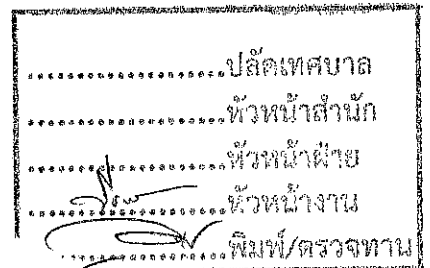 ......................ปลัดเทศบาล
......................หัวหน้าสำนัก
......................หัวหน้าฝ่าย
......................หัวหน้างาน
......................พิมพ์/ตรวจทาน